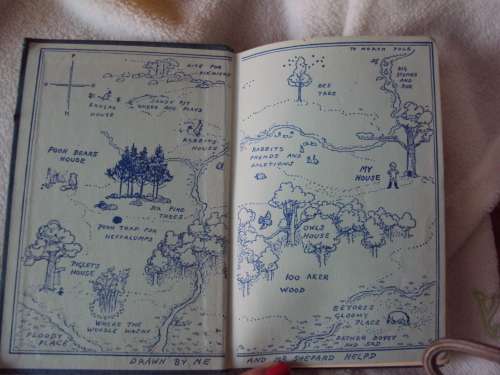 NICE FOR
PICKNICKS
KANGAS
HOUSE
SANDY PIT
WHERE ROO PLAYS
RABBITS
HOUSE
POOH BEARS
HOUSE
SIX PINE
TREES
POOH TRAP FOR
HEFFALUMPS
PIGLETS
HOUSE
WHERE THE
WOOZLE WASNT
FLOODY
PLACE
DRAWN BY ME
TO NORTH POLE
BIG
STONES
AND
ROX
BEE
TREE
RABBITS
FRENDS AND
RALETIONS
MY
HOUSE
OWLS
HOUSE
100 AKER
WOOD
EEYORES
GLOOMY
PLACE
RATHER BOGGY
AND SAD
AND MR SHEPARD HELPD